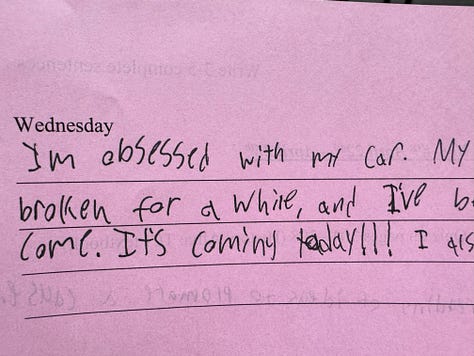 Write 3-5 complete sentences
Wednesday
I'm obsessed with my car. My
broken for a while, and I've b
come. It's coming today!!! I als